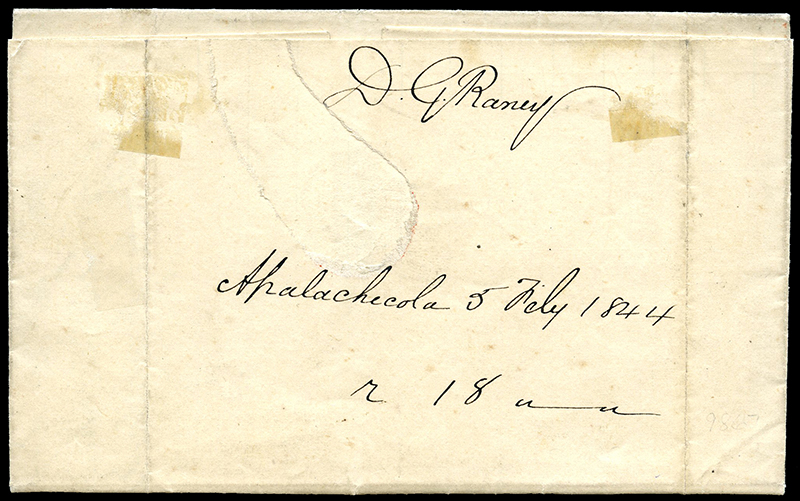 D. G. Raney
Apalachecola 5 Feby 1844
r 18 " "